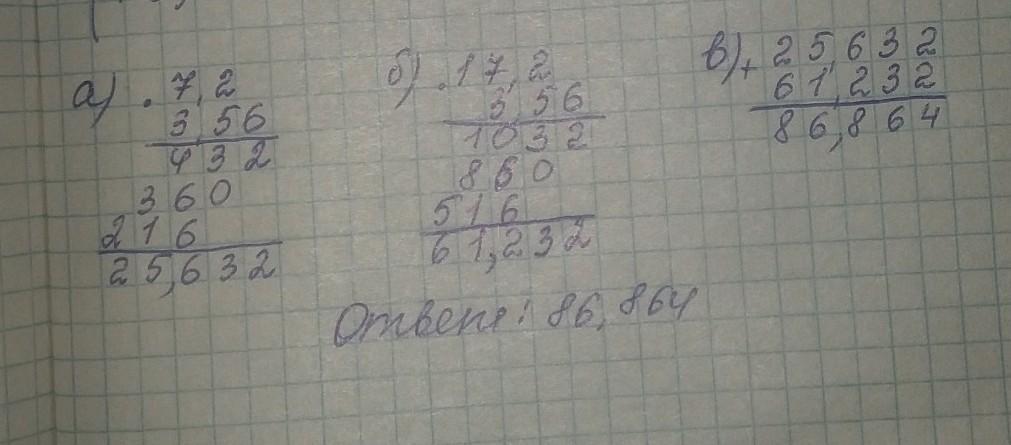 а) . 7,2
3,56
432
360
216
25,632
б) . 17,2
3,56
1032
860
516
61,232
в) + 25,632
61,232
86,864
Ответ: 86,864